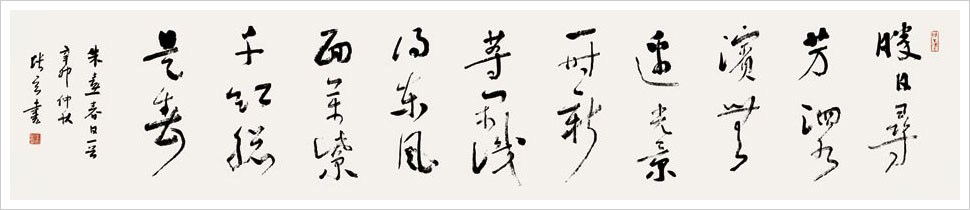 勝日尋
芳泗水
濱無
邊光景
一時新
等閒識
得東風
面萬紫
千紅總
是春
朱熹春日一首
辛卯仲秋
書